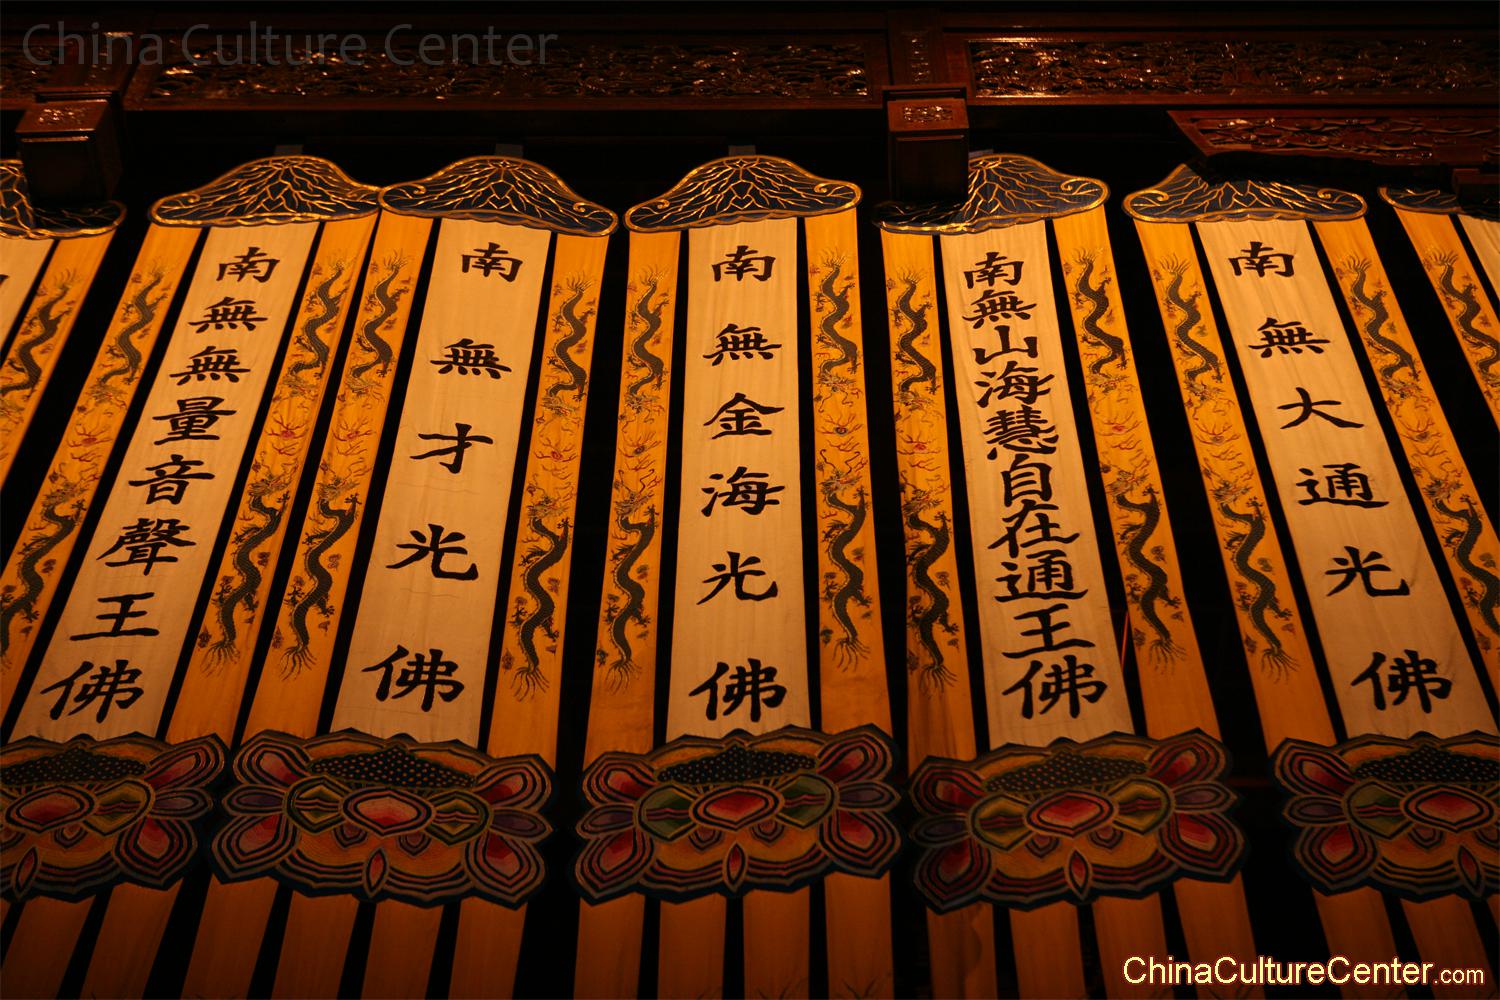 China Culture Center
南無無量音聲王佛
南無才光佛
南無金海光佛
南無山海慧自在通王佛
南無大通光佛
ChinaCultureCenter.com